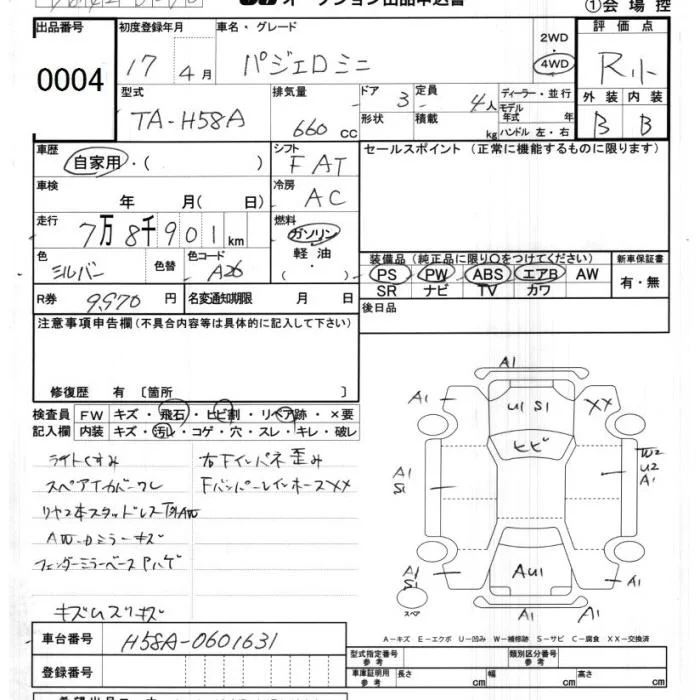 オークション出品申込書
①会場控
出品番号
0004
初度登録年月
17 4月
車名・グレード
パジェロミニ
2WD
4WD
評価点
R小
型式
TA-H58A
排気量
660 cc
ドア 3
形状
定員 - 4人
積載 kg
ディーラー・並行
モデル
年式 年
ハンドル 左・右
外装 内装
B B
車歴
自家用・( )
シフト
FAT
セールスポイント (正常に機能するものに限ります)
車検
年 月( 日)
冷房
AC
走行
7万8千901km
燃料
ガソリン
軽油
・( )
色
シルバー
色替
色コード
A26
装備品(純正品に限り○をつけてください)
PS PW ABS エアB AW
SR ナビ TV カワ
新車保証書
有・無
R券 9,970 円
名変通知期限 月 日
後日品
注意事項申告欄(不具合内容等は具体的に記入して下さい)
修復歴 有 〔箇所 〕
検査員
記入欄
FW キズ・飛石・ヒビ割・リペア跡・×要
内装 キズ・汚レ・コゲ・穴・スレ・キレ・破レ
ライトくすみ
スペアTカバーワレ
リヤ2本スタッドレス
AW・ミラーキズ
フェンダーミラーベースPハゲ
キズUスリキズ
右Fインパネ歪み
FバンパーレインホースXX
A1
A1
U1 S1
XX
ヒビ
A1
S1
W2
U2
A1
A1
S1
AU1
A1
スペア
A1
A1
A-キズ E-エクボ U-凹み W-補修跡 S-サビ C-腐食 XX-交換済
車台番号
H58A-0601631
登録番号
型式指定番号
参考
類別区分番号
参考
車庫証明用
参考
長さ cm 幅 cm 高さ cm